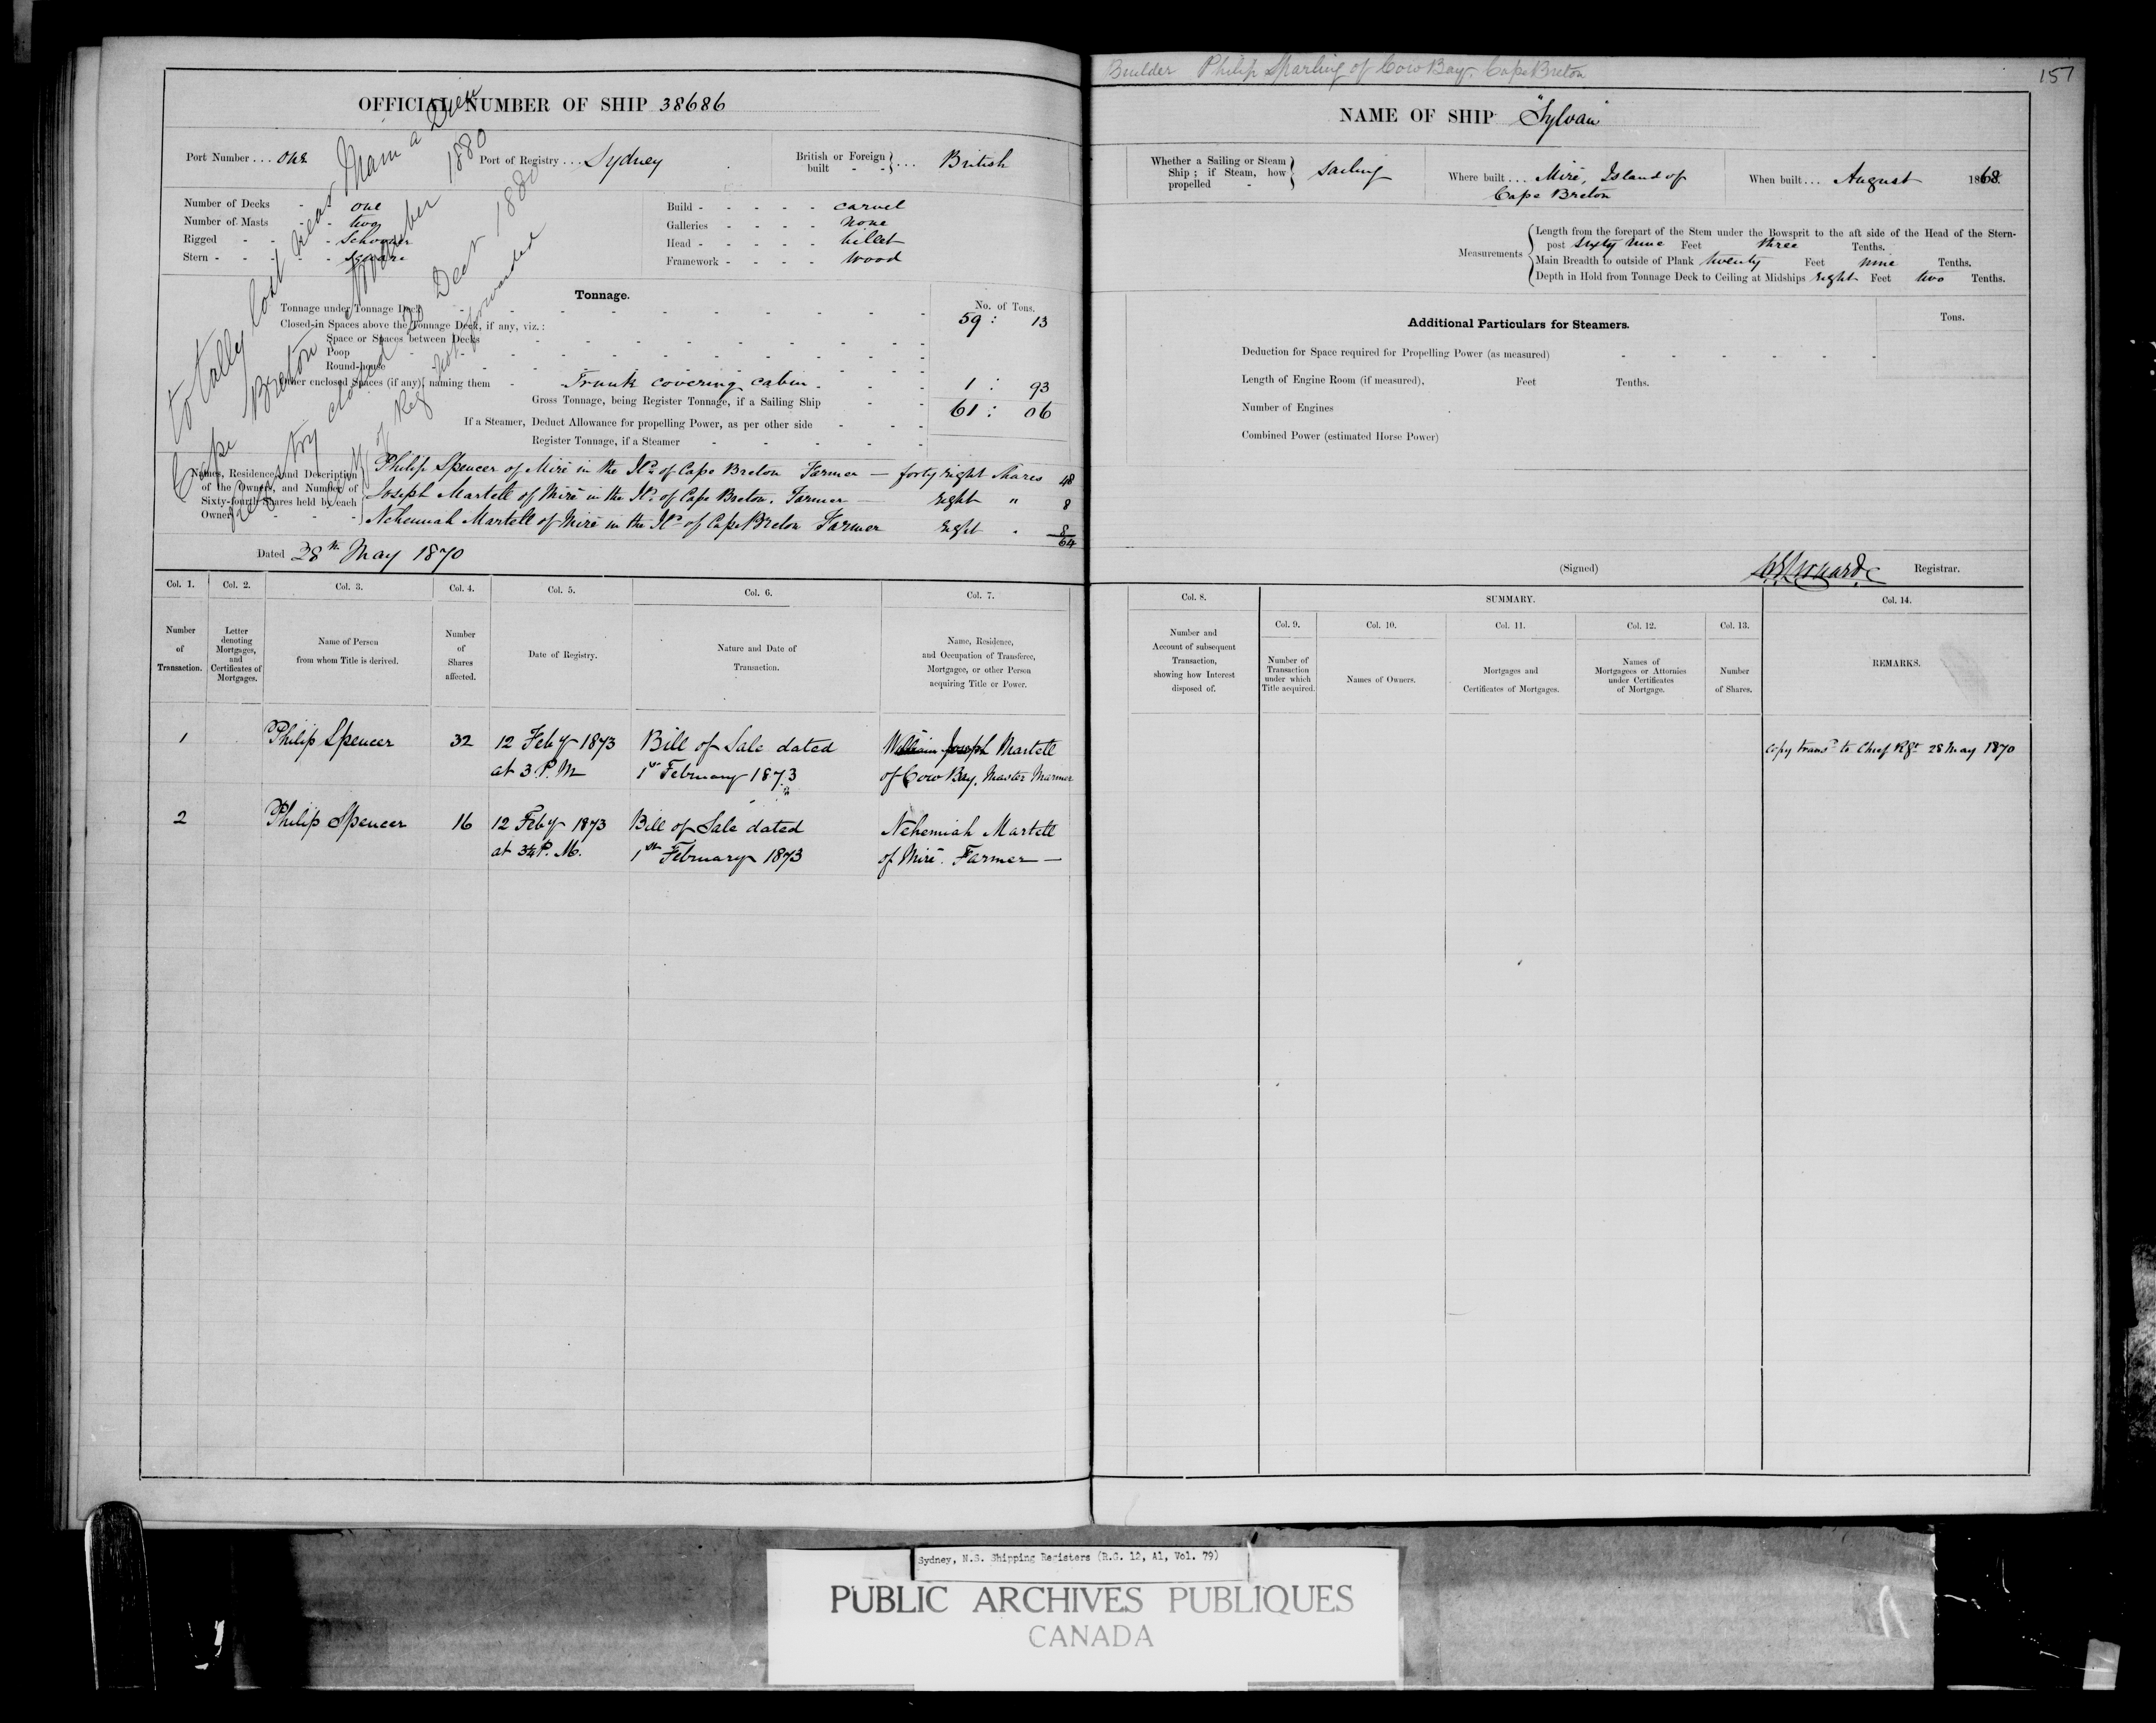 Builder Philip Sparling of Cow Bay, Cape Breton
157
OFFICIAL NUMBER OF SHIP 38686
NAME OF SHIP "Sylvan"
Port Number ... one
Port of Registry ... Sydney
British or Foreign built - - } ... British
Whether a Sailing or Steam Ship ; if Steam, how propelled - } Sailing
Where built ... Miré, Island of
Cape Breton
When built ... August 1868.
Number of Decks - one
Number of Masts - two
Rigged - - - Schooner
Stern - - - - Square
Build - - - - - carvel
Galleries - - - - none
Head - - - - - billet
Framework - - - - wood
Measurements
Length from the forepart of the Stem under the Bowsprit to the aft side of the Head of the Stern-
post sixty nine Feet three Tenths.
Main Breadth to outside of Plank twenty Feet nine Tenths.
Depth in Hold from Tonnage Deck to Ceiling at Midships eight Feet two Tenths.
totally lost near Main a Dieu
Cape Breton November 1880
Registry closed 20 Decr 1880
of Reg not forwarded
Tonnage.
No. of Tons.
Tonnage under Tonnage Deck 59 : 13
Closed-in Spaces above the Tonnage Deck, if any, viz.:
Space or Spaces between Decks
Poop
Round-house
Other enclosed Spaces (if any), naming them - Trunk covering cabin 1 : 93
Gross Tonnage, being Register Tonnage, if a Sailing Ship 61 : 06
If a Steamer, Deduct Allowance for propelling Power, as per other side
Register Tonnage, if a Steamer
Additional Particulars for Steamers.
Tons.
Deduction for Space required for Propelling Power (as measured)
Length of Engine Room (if measured), Feet Tenths.
Number of Engines
Combined Power (estimated Horse Power)
Names, Residence, and Description of the Owners, and Number of Sixty-fourth Shares held by each Owner
Philip Spencer of Miré in the Id. of Cape Breton Farmer — forty eight Shares 48
Joseph Martell of Miré in the Id. of Cape Breton. Farmer — eight " 8
Nehemiah Martell of Miré in the Id. of Cape Breton Farmer eight " 8
64
Dated 28th May 1870
(Signed) Registrar.
Col. 1. Col. 2. Col. 3. Col. 4. Col. 5. Col. 6. Col. 7.
Col. 8. SUMMARY. Col. 14.
Col. 9. Col. 10. Col. 11. Col. 12. Col. 13.
Number of Transaction.
Letter denoting Mortgages, and Certificates of Mortgages.
Name of Person from whom Title is derived.
Number of Shares affected.
Date of Registry.
Nature and Date of Transaction.
Name, Residence, and Occupation of Transferee, Mortgagee, or other Person acquiring Title or Power.
Number and Account of subsequent Transaction, showing how Interest disposed of.
Number of Transaction under which Title acquired.
Names of Owners.
Mortgages and Certificates of Mortgages.
Names of Mortgagees or Attornies under Certificates of Mortgage.
Number of Shares.
REMARKS.
1 Philip Spencer 32 12 Feby 1873 Bill of Sale dated William Joseph Martell
at 3 P.M 1st February 1873 of Cow Bay, Master Mariner
copy transd. to Chief Rgr 28 May 1870
2 Philip Spencer 16 12 Feby 1873 Bill of Sale dated Nehemiah Martell
at 3¼ P.M. 1st February 1873 of Miré. Farmer —
Sydney, N.S. Shipping Registers (R.G. 12, A1, Vol. 79)
PUBLIC ARCHIVES PUBLIQUES
CANADA